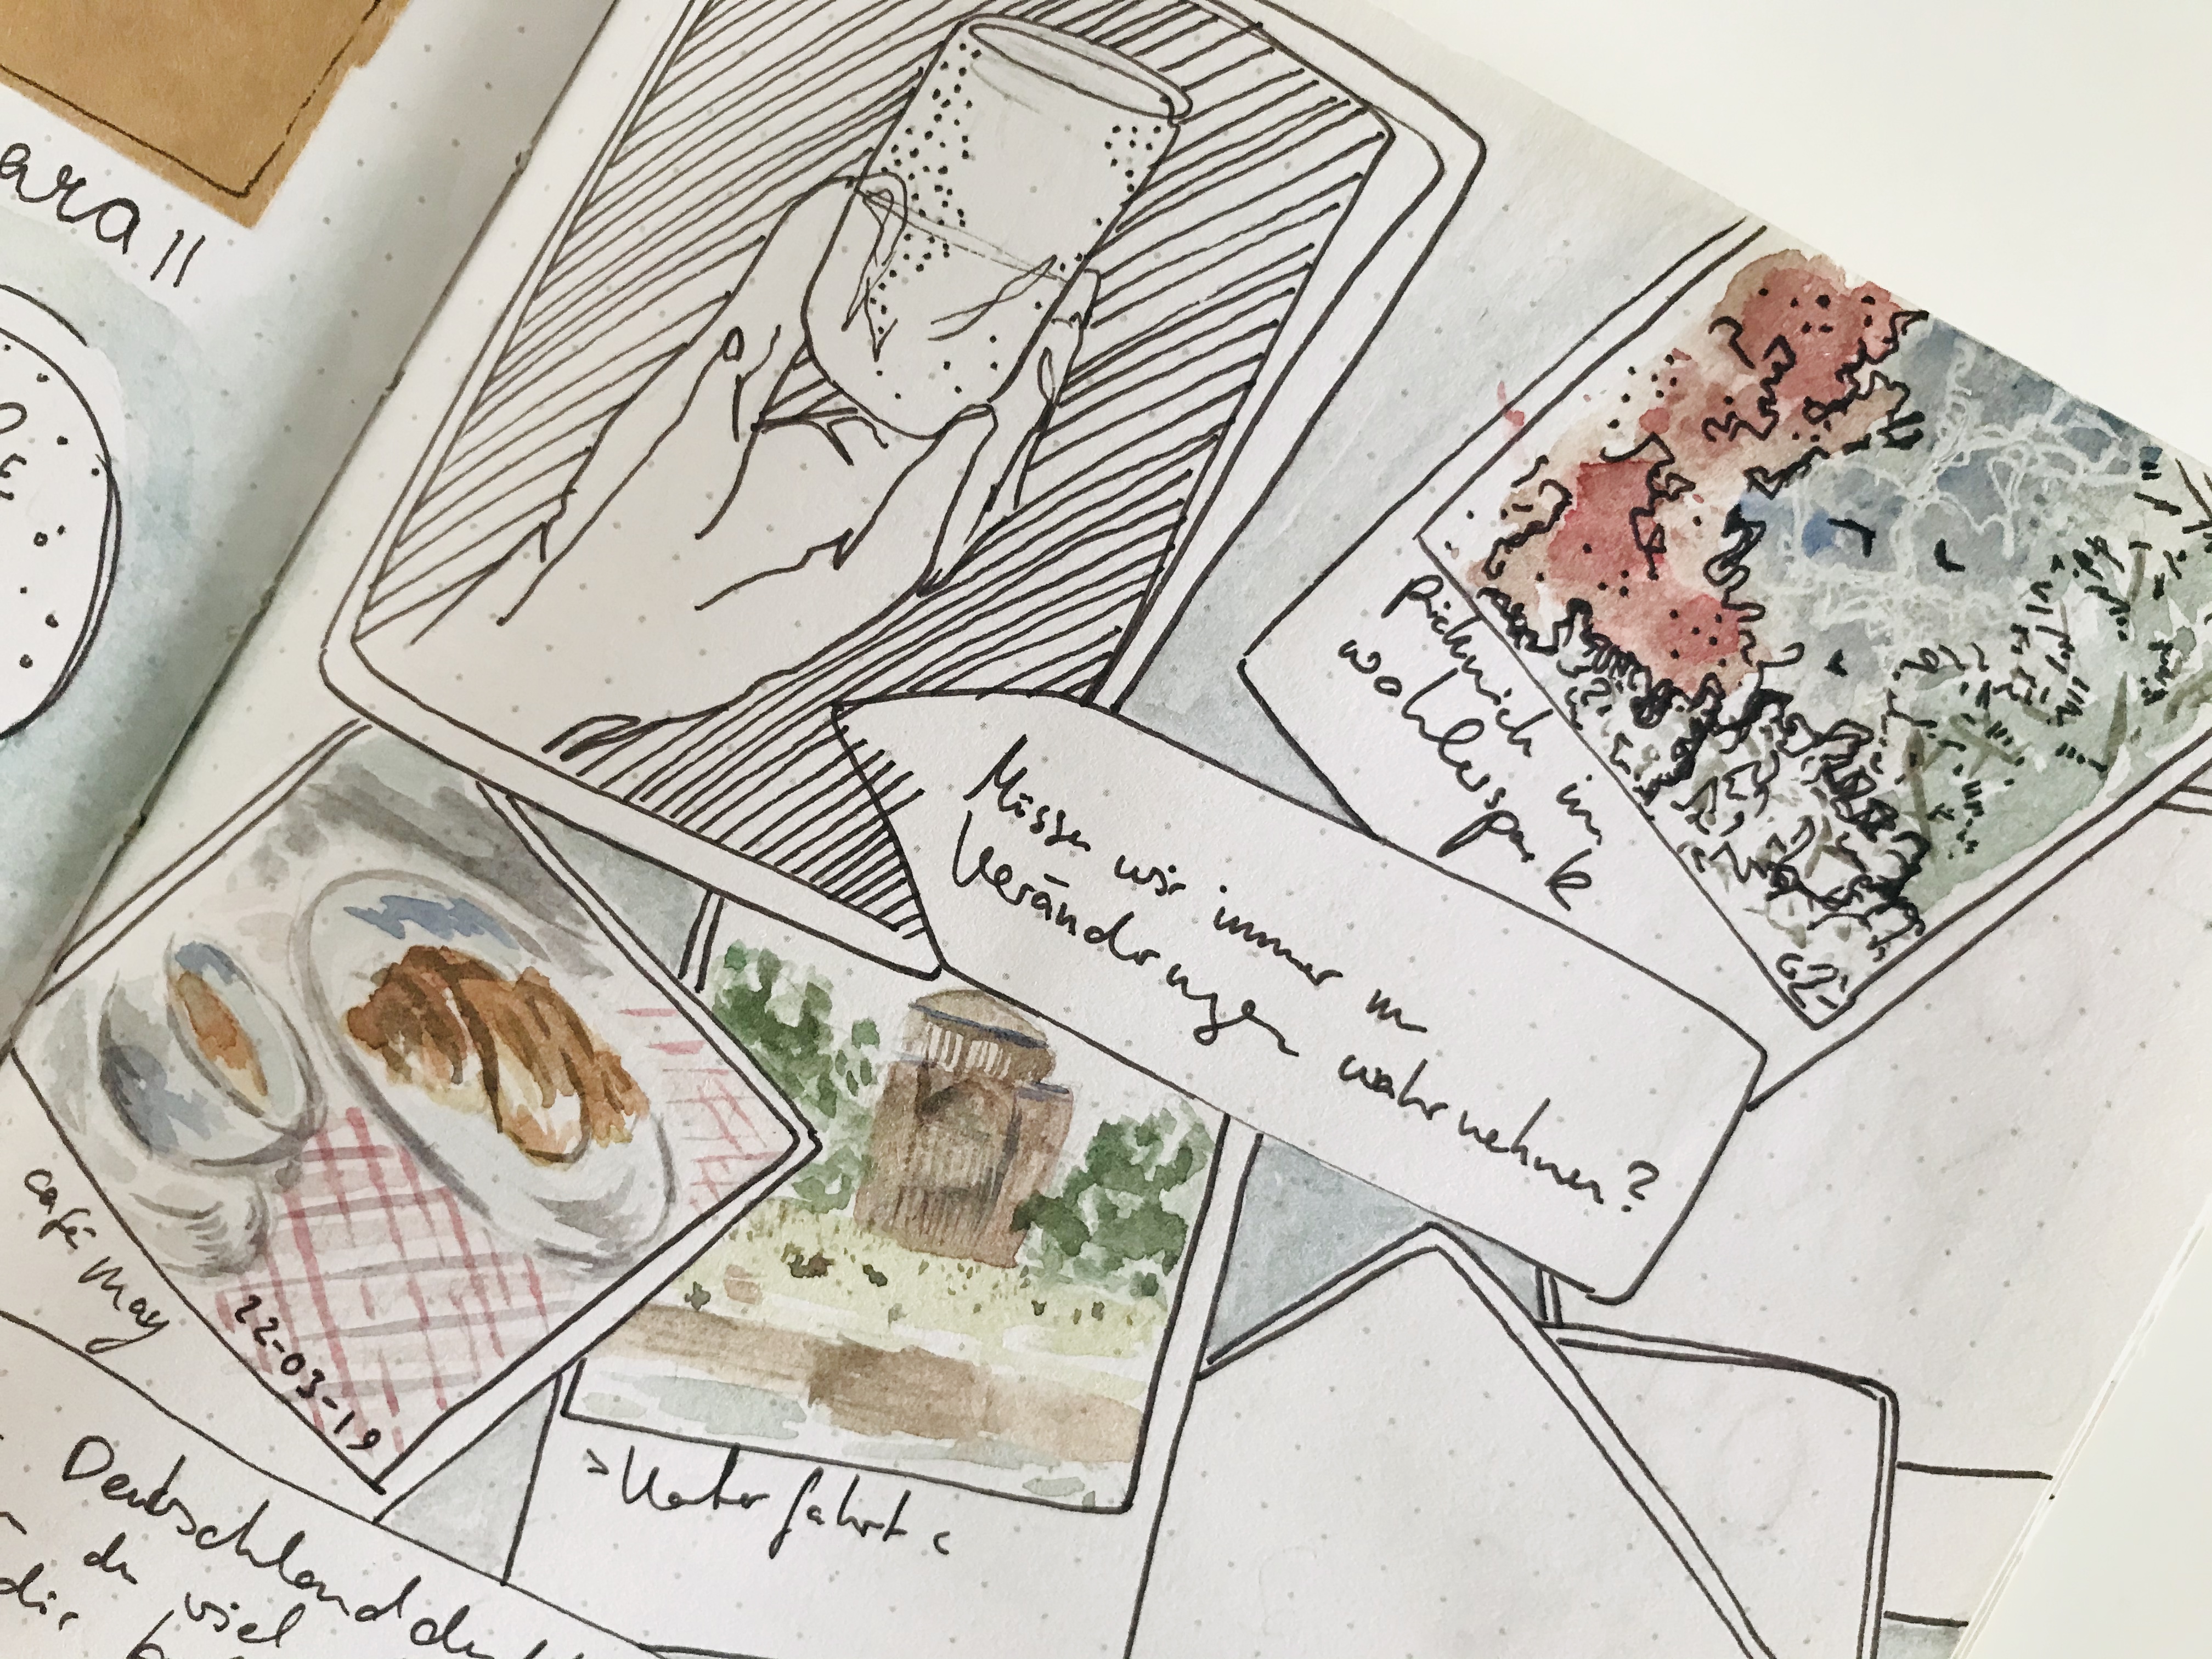 picknick im
wohlerspark
Müssen wir immer in
Veränderungen wahrnehmen?
café may
22-03-19
Deutschland
du viel
die